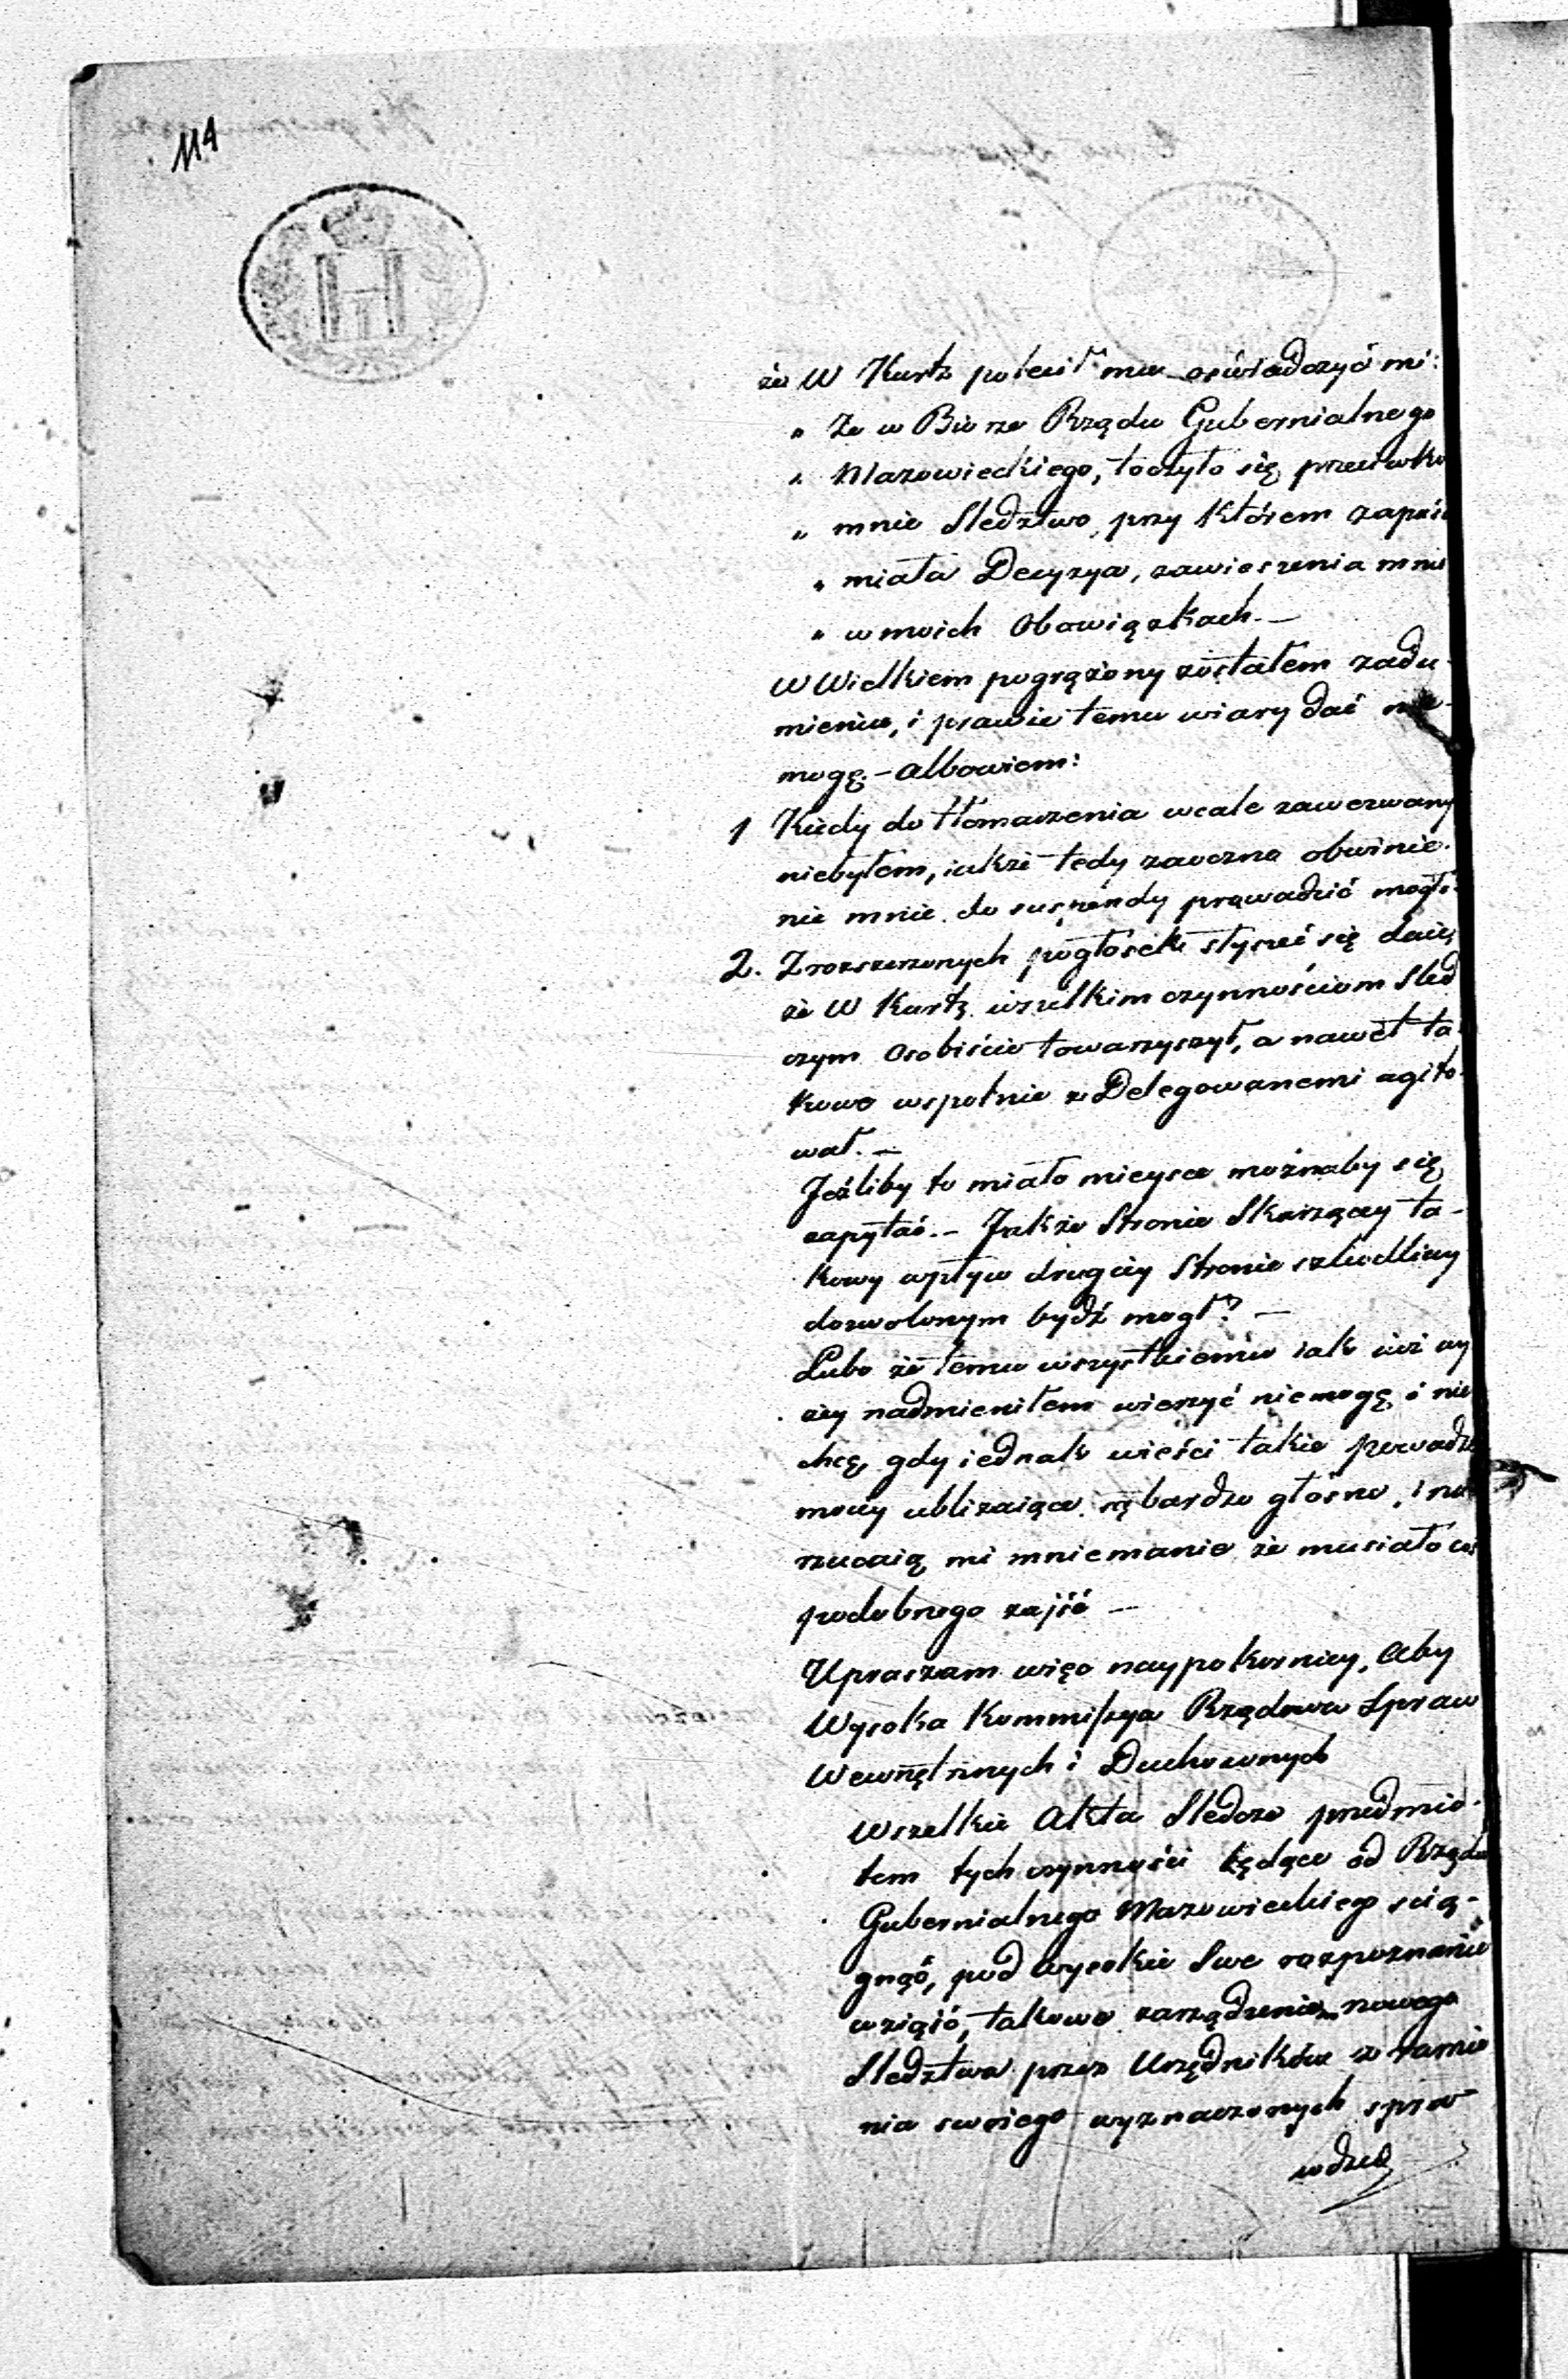 114
H
I
że W Kurtz polecił mu oświadczyć mi:
„ Że w Biurze Rządu Gubernialnego
„ Mazowieckiego, toczyło się przeciwko
„ mnie Sledztwo, przy którem zapaść
„ miała Decyzya, zawieszenia mnie
„ w moich Obowiązkach. —
W Wielkiem pogrążony zostałem zadu-
mieniu, i prawie temu wiary dać nie
mogę. – Albowiem:
1 Kiedy do tłomaczenia wcale zawezwany
niebyłem, iakże tedy zaoczne obwinie-
nie mnie do suspendy prowadzić mogło
2. Z rozszerzonych pogłosek słyszeć się daie,
że W Kurtz wszelkim czynnościom Sled
czym Osobiście towarzyszył, a nawet ta-
kowe wspolnie z Delegowanemi agito-
wał. —
Jeżliby to miało mieysce możnaby się
zapytać. – Jakże Stronie Skarzącey ta-
kowy wpływ drugiey Stronie szkodliwy
dozwolonym bydź mogł? —
Lubo że temu wszystkiemu iak iuż wy
żey nadmieniłem wierzyć niemogę i nie
chcę, gdy iednak wieści takie
ubliżaiące są bardzo głośne, i na
rzucaią mi mniemanie że musiało coś
podobnego zajść —
Upraszam więc naypokorniey, Aby
Wysoka Kommissya Rządowa Spraw
Wewnętrznych i Duchownych
Wszelkie Akta Sledcze przedmio-
tem tych czynności będące od Rządu
Gubernialnego Mazowieckiego scią-
gnąć, pod wysokie Swe rozpoznanie
wziąść, takowe zarządzenie nowego
Sledztwa przez Urzędników z ramie
nia swoiego wyznaczonych spra
wdzić